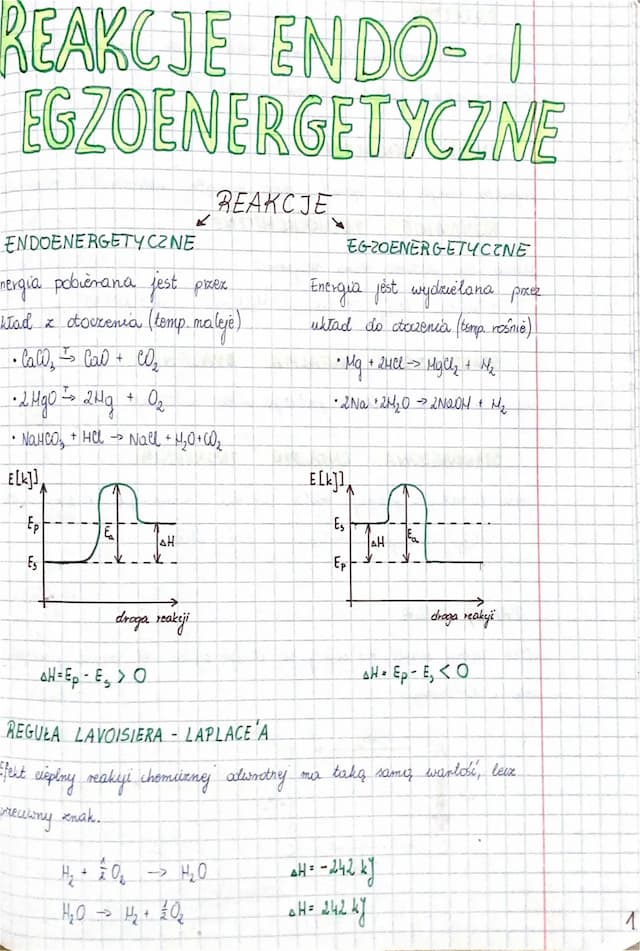 REAKCJE ENDO- I
EGZOENERGETYCZNE
REAKCJE
ENDOENERGETYCZNE
nergia pobierana jest przez
kład z otoczenia (temp. maleje)
• CaCO₃ T→ CaO + CO₂
• 2MgO T→ 2Mg + O₂
• NaHCO₃ + HCl → NaCl + H₂O + CO₂
E[kJ]
Ep
Ea
ΔH
Es
droga reakcji
ΔH = Ep - Es > 0
EGZOENERGETYCZNE
Energia jest wydzielana przez
układ do otoczenia (temp. rośnie)
• Mg + 2HCl → MgCl₂ + H₂
• 2Na + 2H₂O → 2NaOH + H₂
E[kJ]
Es
ΔH
Ea
Ep
droga reakcji
ΔH = Ep - Es < 0
REGUŁA LAVOISIERA - LAPLACE'A
Efekt cieplny reakcji chemicznej odwrotnej ma taką samą wartość, lecz
przeciwny znak.
H₂ + ½O₂ → H₂O ΔH = -242 kJ
H₂O → H₂ + ½O₂ ΔH = 242 kJ
1